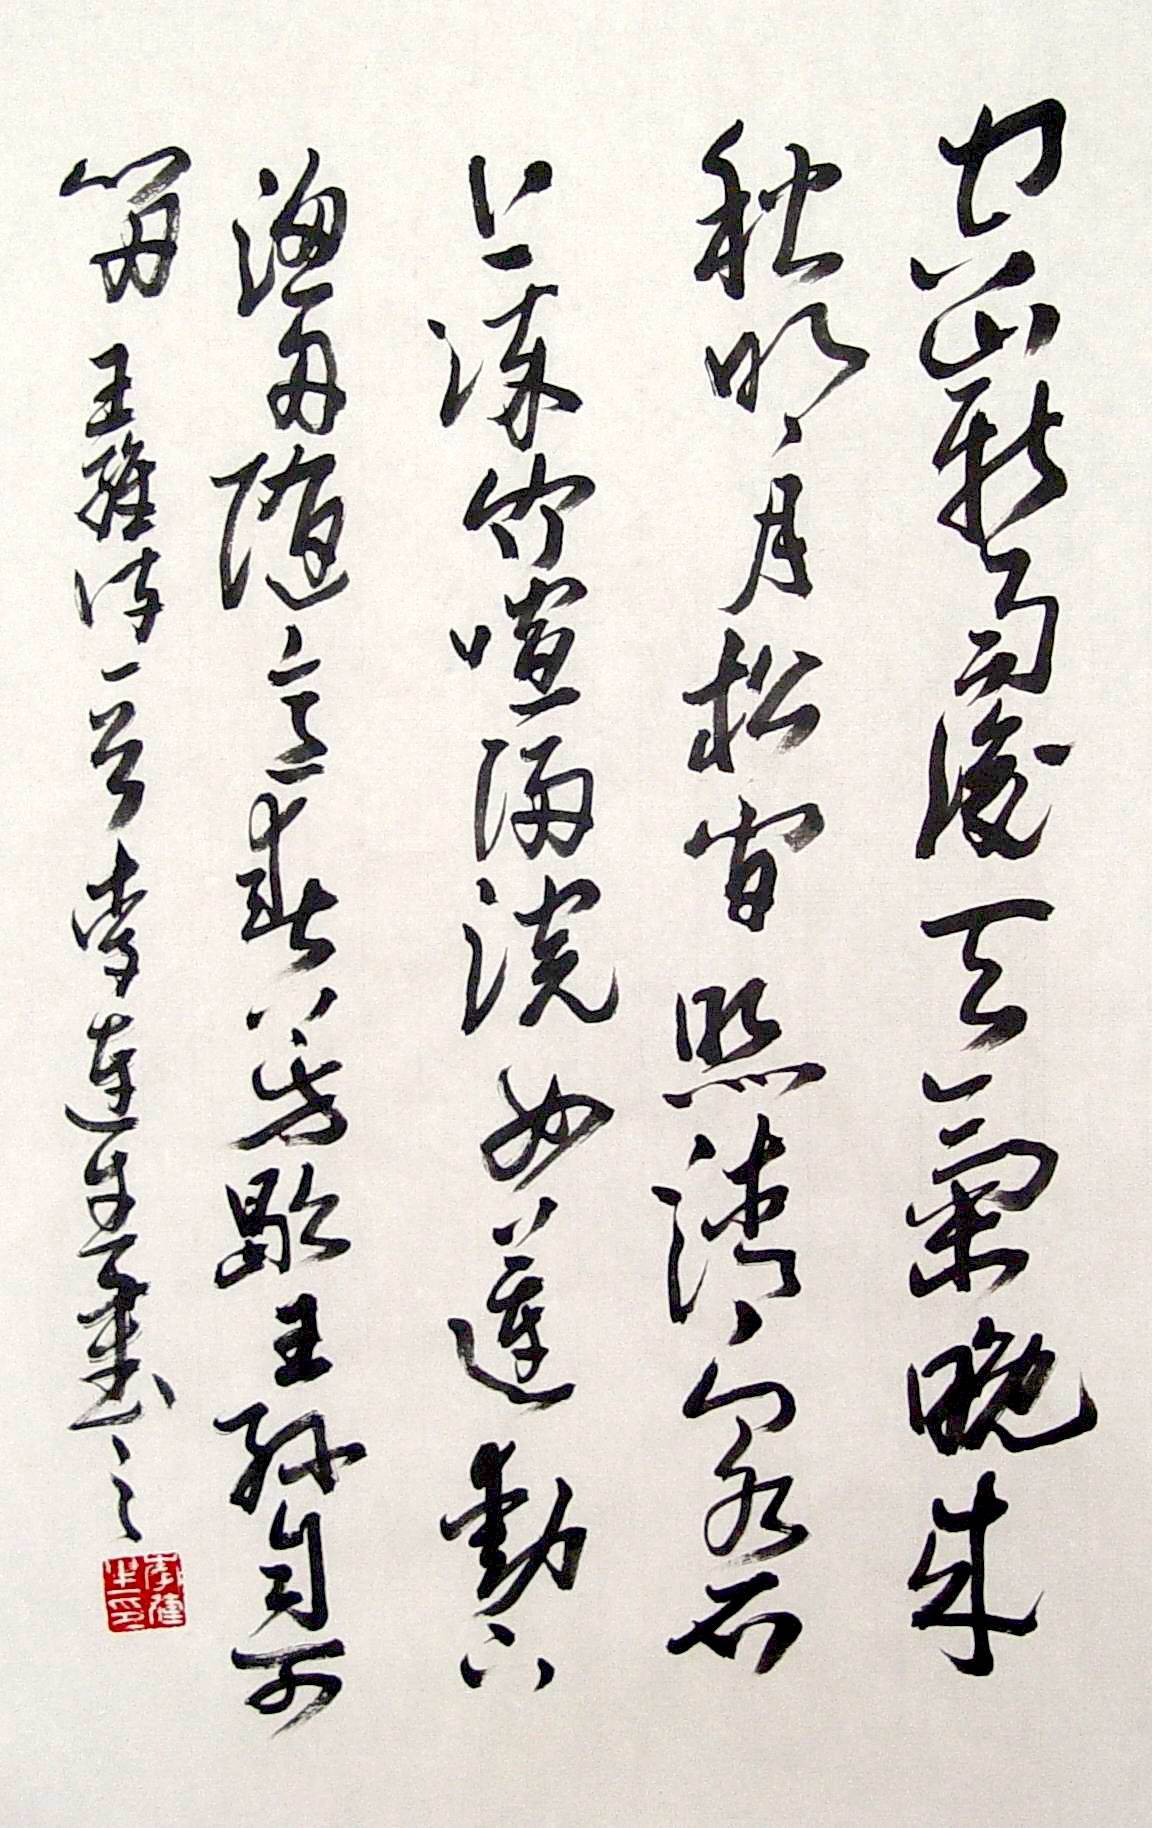 空山新雨後天氣晚來
秋明月松間照清泉石
上流竹喧歸浣女蓮動下
漁舟隨意春芳歇王孫自可
留 王維詩一首 李生書之